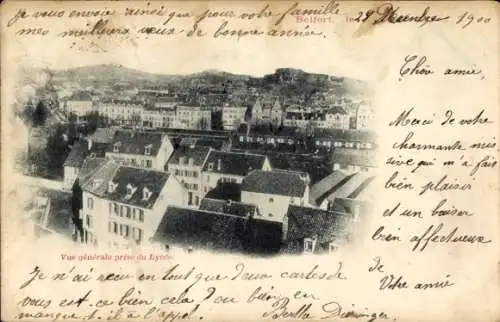 je vous envoie ainsi que pour votre famille
mes meilleurs vœux de bonne année.
Belfort, le 29 Décembre 1900
Chère amie,
Merci de votre
charmante missive
qui m'a fait
bien plaisir
et un baiser
bien affectueux
de
Votre amie
Bertha
Vue générale prise du Lycée
Je n'ai reçu en tout que deux cartes de
vous est ce bien cela, ou bien en
manque t-il à l'appel.